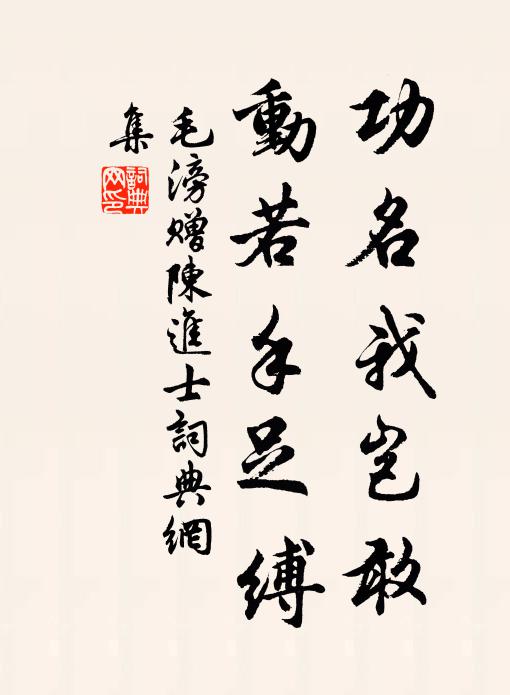 功名我岂敢
動若手足縛
毛滂赠陳進士詞典網
集
詞典网印